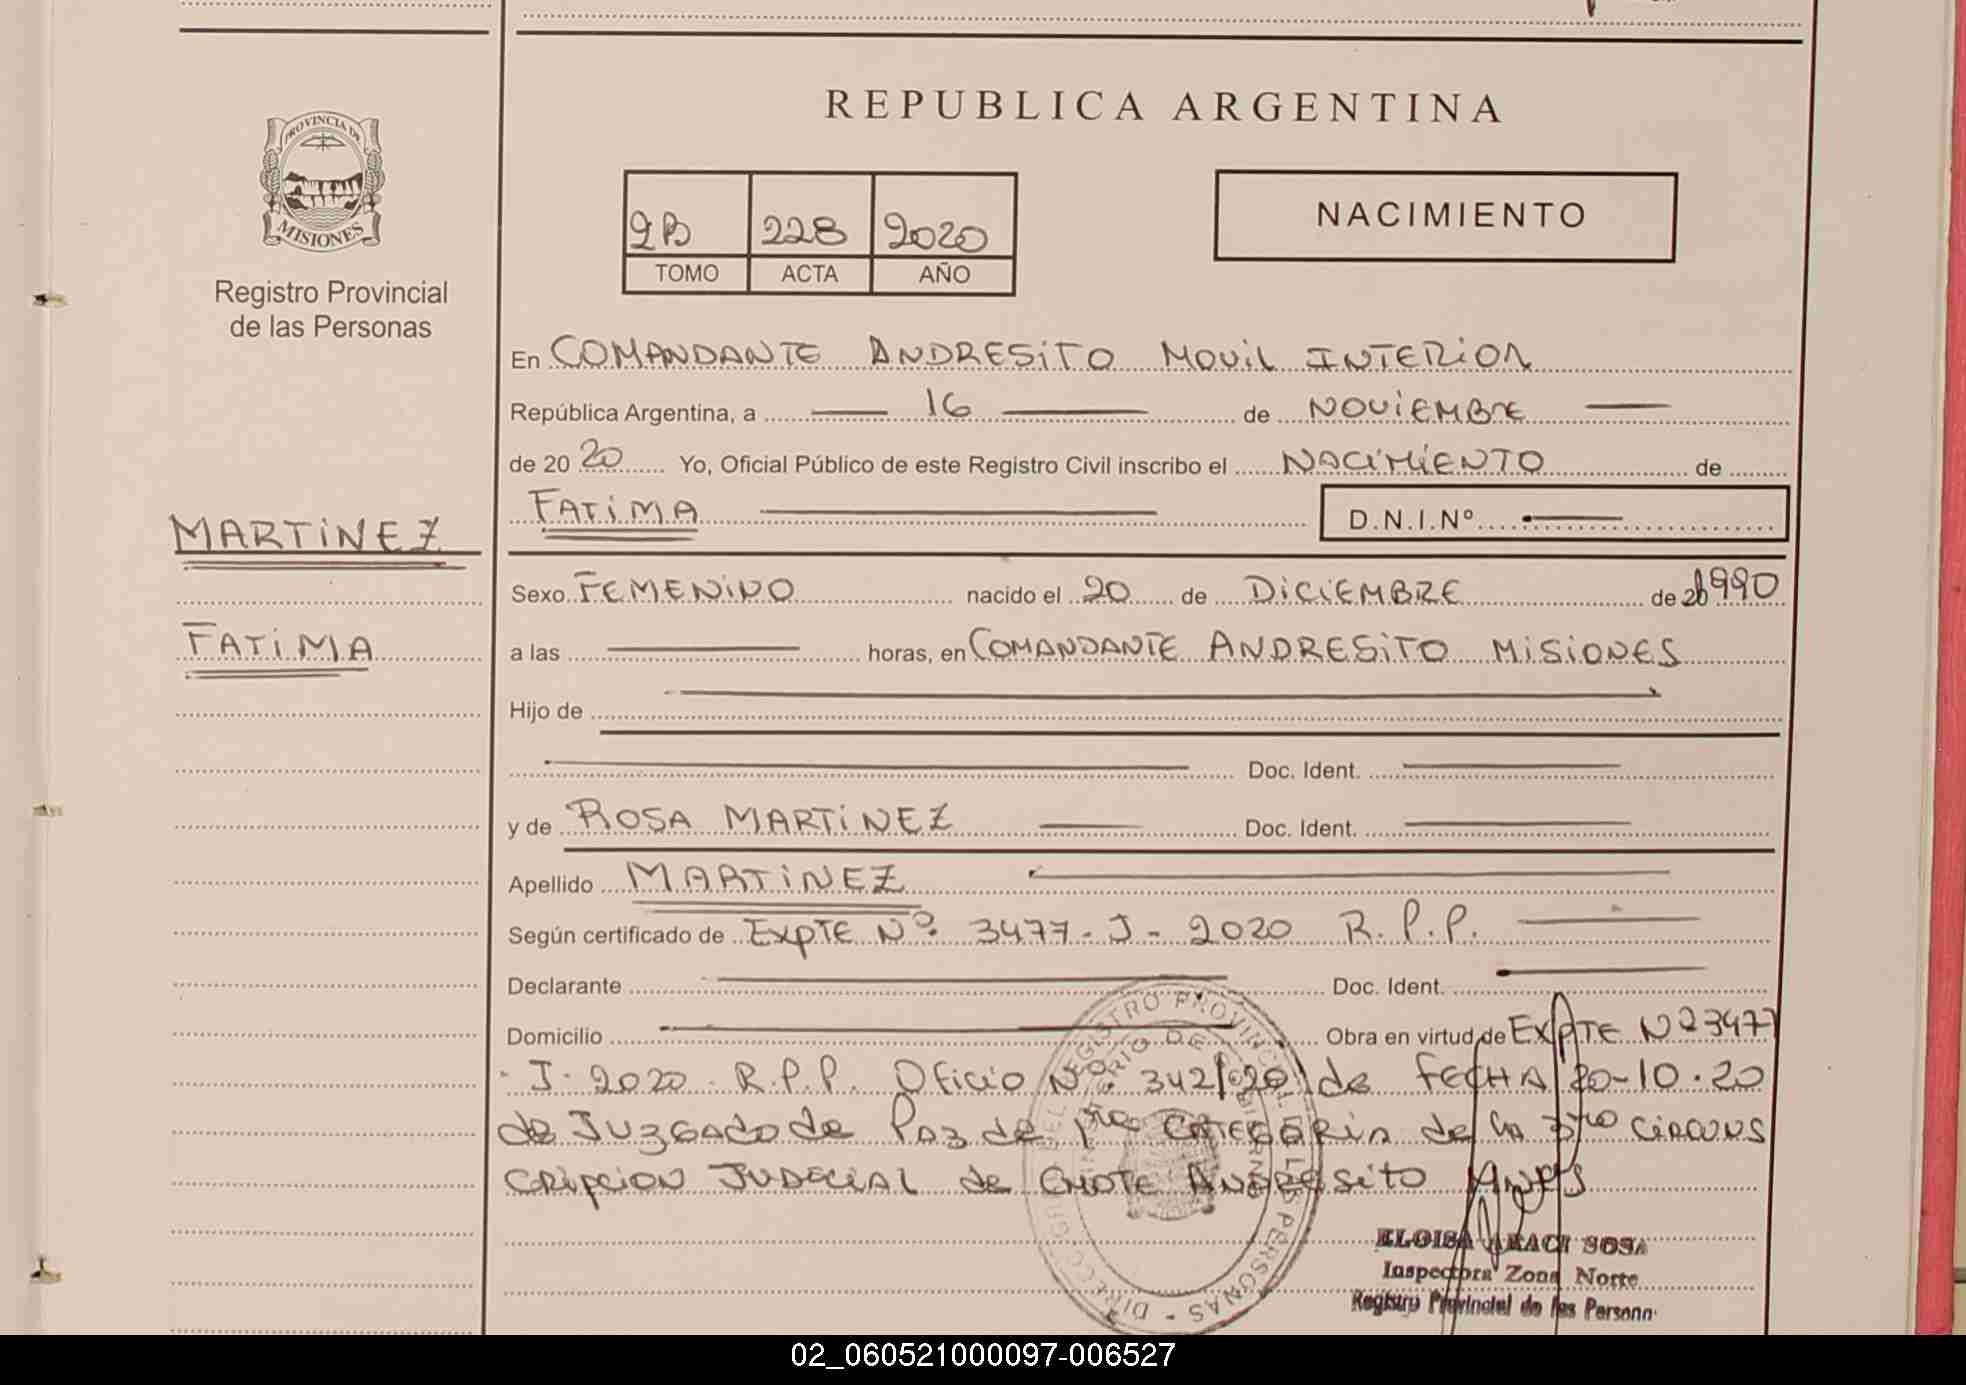 REPUBLICA ARGENTINA
PROVINCIA DE
MISIONES
Registro Provincial
de las Personas
2B 228 2020
TOMO ACTA AÑO
NACIMIENTO
En COMANDANTE ANDRESITO MOVIL INTERIOR
República Argentina, a 16 de NOVIEMBRE
de 20 20 Yo, Oficial Público de este Registro Civil inscribo el NACIMIENTO de
FATIMA D.N.I.Nº
MARTINEZ
Sexo FEMENINO nacido el 20 de DICIEMBRE de 1990
FATIMA
a las horas, en COMANDANTE ANDRESITO MISIONES
Hijo de
Doc. Ident.
y de ROSA MARTINEZ Doc. Ident.
Apellido MARTINEZ
Según certificado de EXPTE Nº 3477-J-2020 R.P.P.
Declarante Doc. Ident.
Domicilio Obra en virtud de EXPTE Nº 3477
-J-2020 R.P.P. Oficio Nº 342/020 de FECHA 20-10-20
de JUZGADO de PAZ de 1ra CATEGORIA de la 3ro CIRCUNS
CRIPCION JUDECIAL de CMDTE ANDRESITO MNES
DIRECC. GRAL DEL REGISTRO PROVINCIAL DE LAS PERSONAS
MINISTERIO DE GOBIERNO
ELOISA ARACI SOSA
Inspectora Zona Norte
Registro Provincial de las Persona
02_060521000097-006527